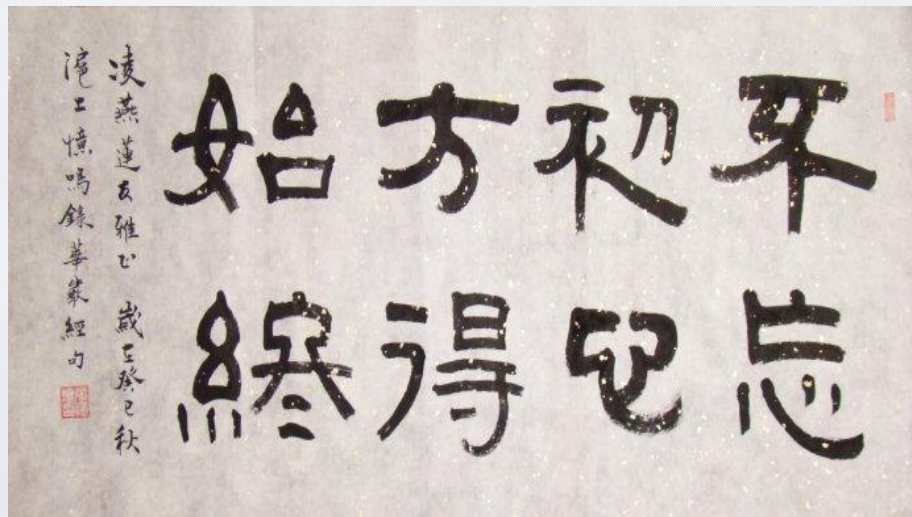 不忘
初心
方得
始終
凌燕蓮友雅正 歲在癸巳秋
滬上憶鳴錄華嚴經句